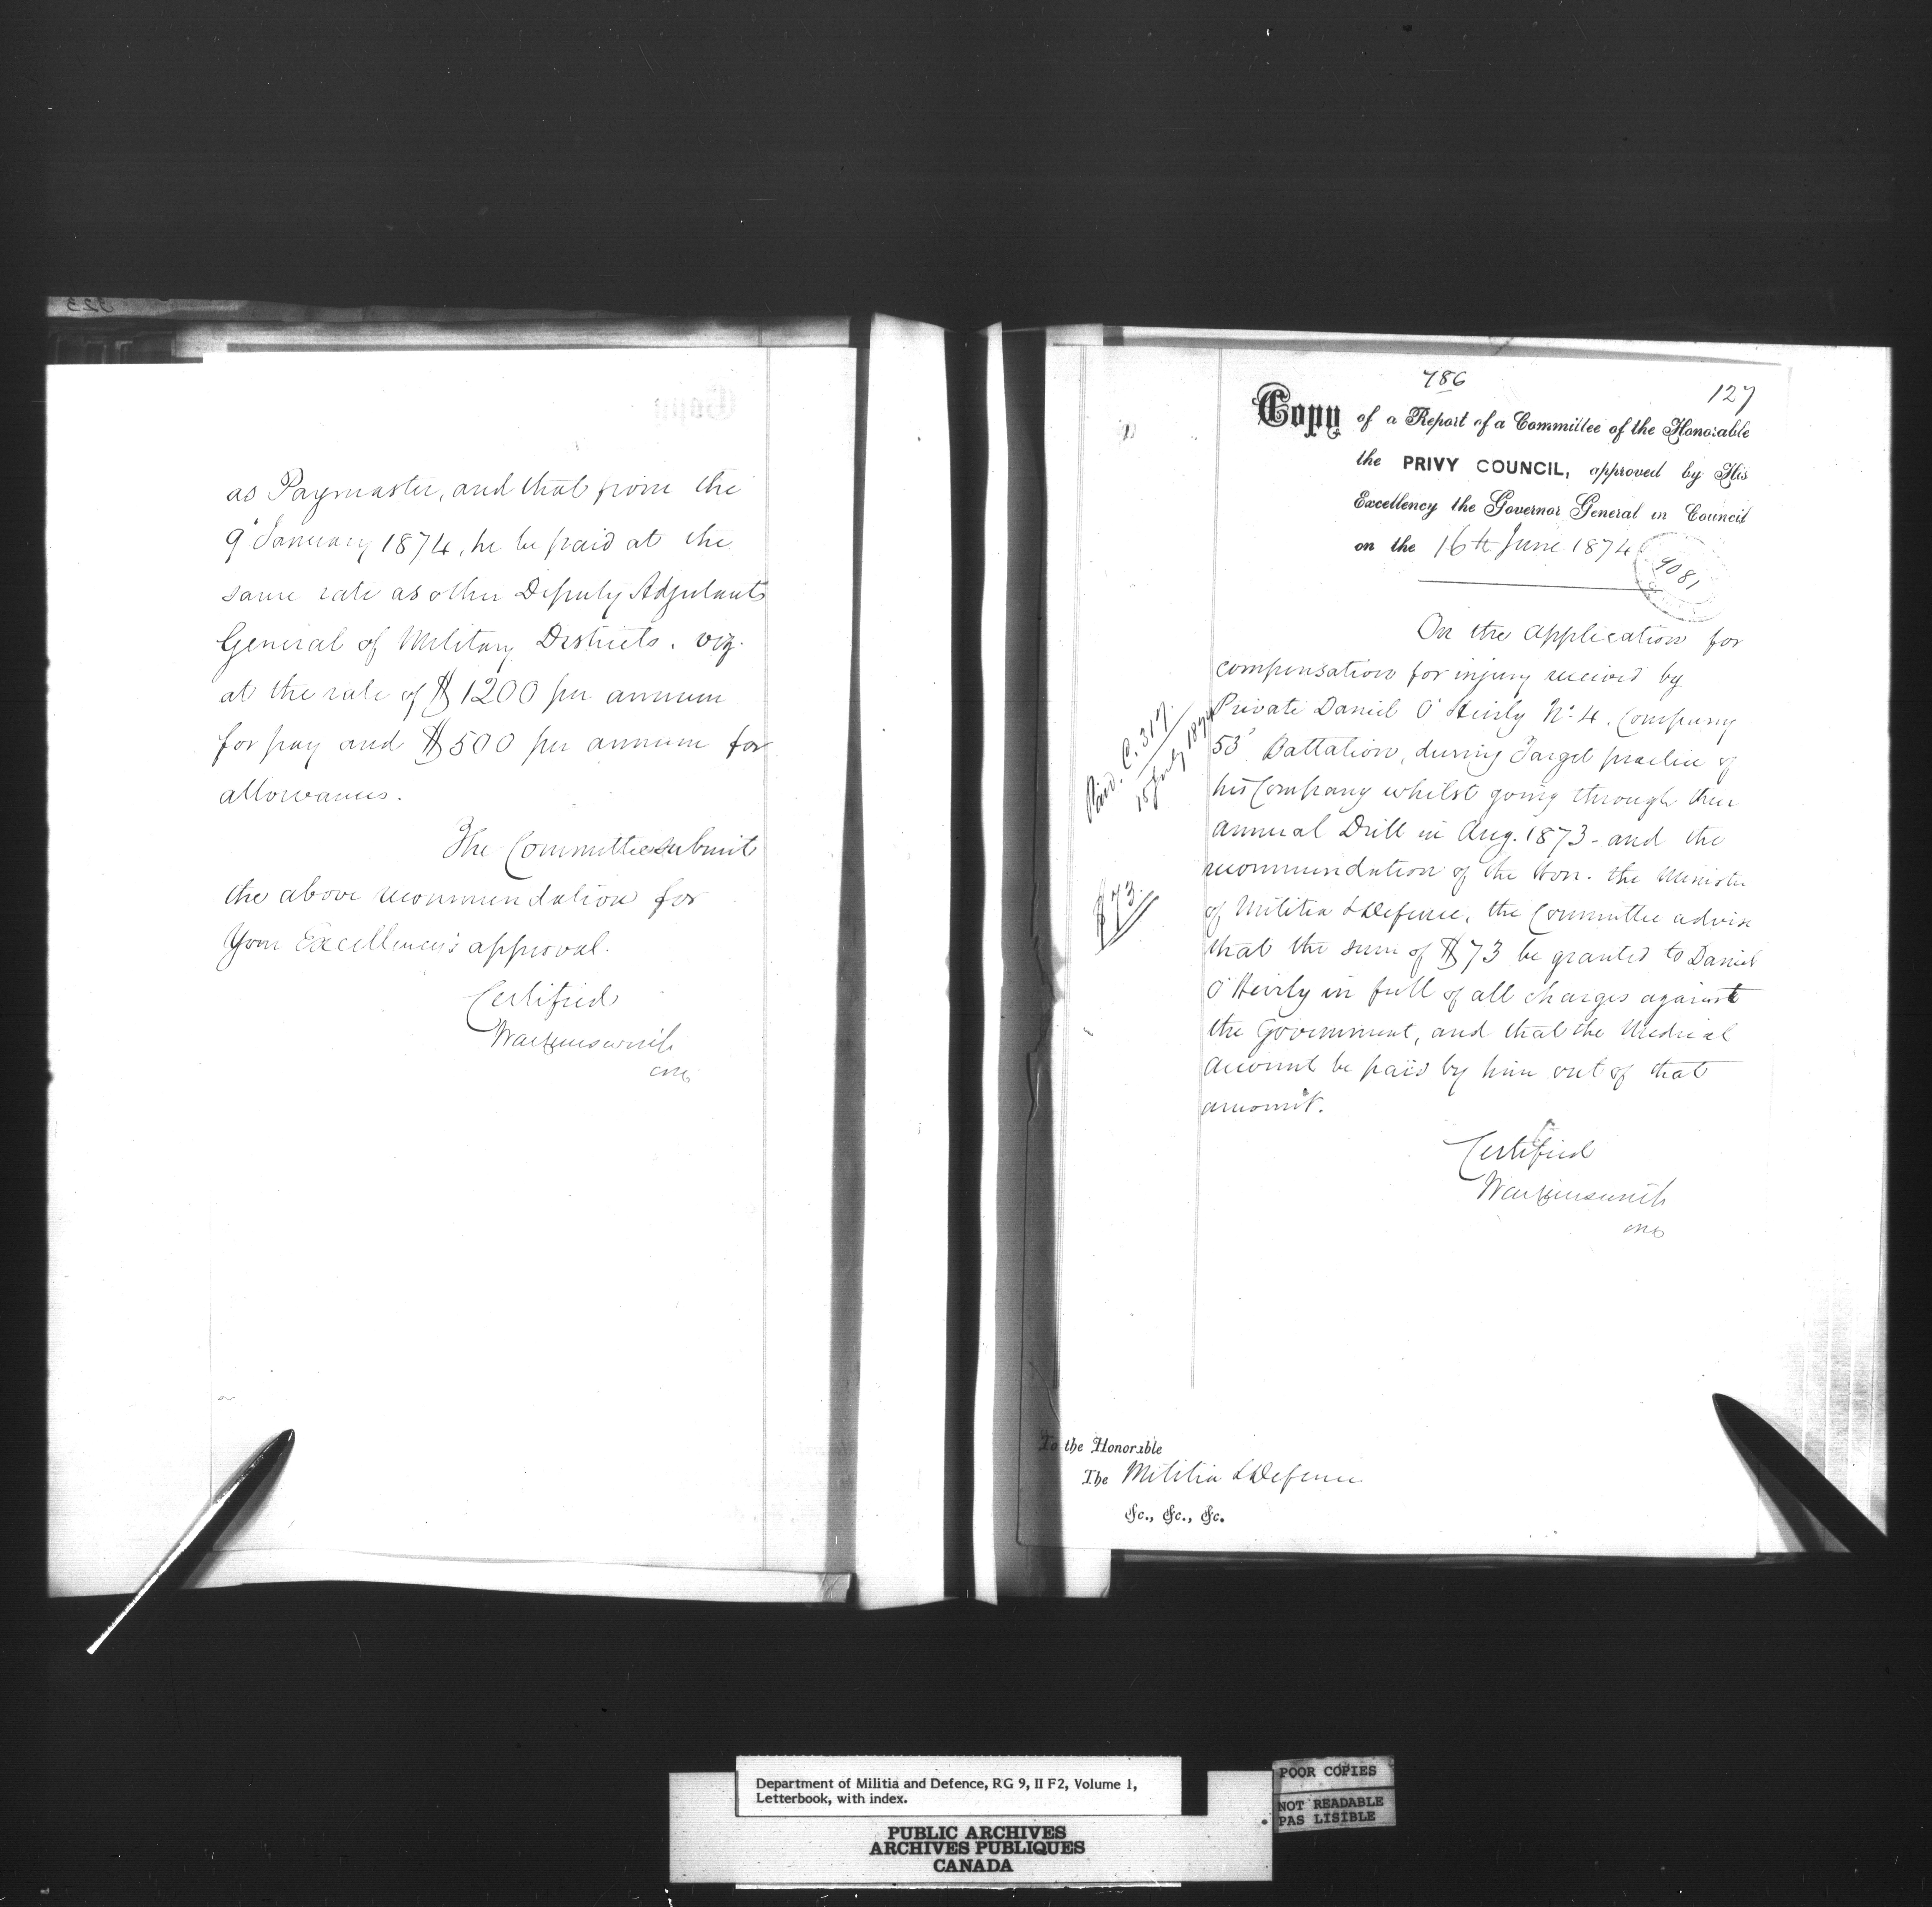 as Paymaster, and that from the
9' January 1874, he be paid at the
same rate as other Deputy Adjutants
General of Military Districts. viz.
at the rate of $1200 per annum
for pay and $500 per annum for
allowances.
The Committee submit
the above recommendation for
Your Excellency's approval.
Certified
786
127
Copy of a Report of a Committee of the Honorable
the PRIVY COUNCIL, approved by His
Excellency the Governor General in Council
on the 16th June 1874
9081
On the application for
compensation for injury received by
Private Daniel O'Heirly No. 4. Company
53' Battalion, during Target practice of
his Company whilst going through their
annual Drill in Aug. 1873 - and the
recommendation of the Hon. the Minister
of Militia & Defence, the Committee advise
that the sum of $73 be granted to Daniel
O'Heirly in full of all charges against
the Government, and that the Medical
account be paid by him out of that
amount.
Certified
Paid. C. 317.
15 July 1874
$73.
To the Honorable
The Militia & Defence
&c., &c., &c.
Department of Militia and Defence, RG 9, II F2, Volume 1,
Letterbook, with index.
PUBLIC ARCHIVES
ARCHIVES PUBLIQUES
CANADA
POOR COPIES
NOT READABLE
PAS LISIBLE